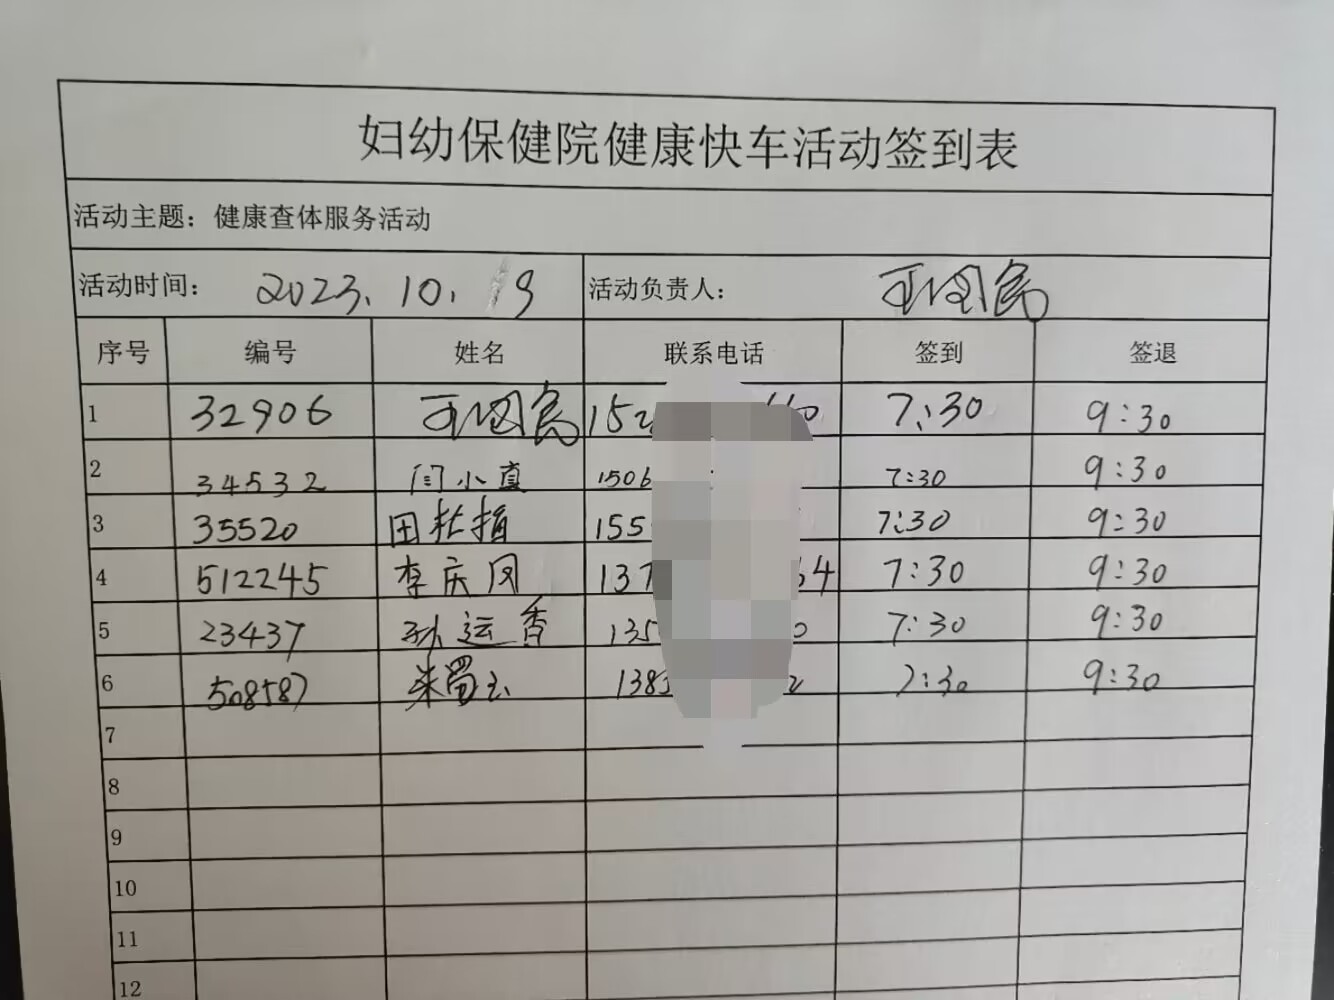 妇幼保健院健康快车活动签到表
活动主题：健康查体服务活动
活动时间： 2023.10.19 活动负责人：
序号 编号 姓名 联系电话 签到 签退
1 32906 152 7:30 9:30
2 34532 闫小真 1506 7:30 9:30
3 35520 田 155 7:30 9:30
4 512245 李庆风 137 64 7:30 9:30
5 23437 孙运香 135 0 7:30 9:30
6 508587 朱蜀云 1383 2 7:30 9:30
7
8
9
10
11
12